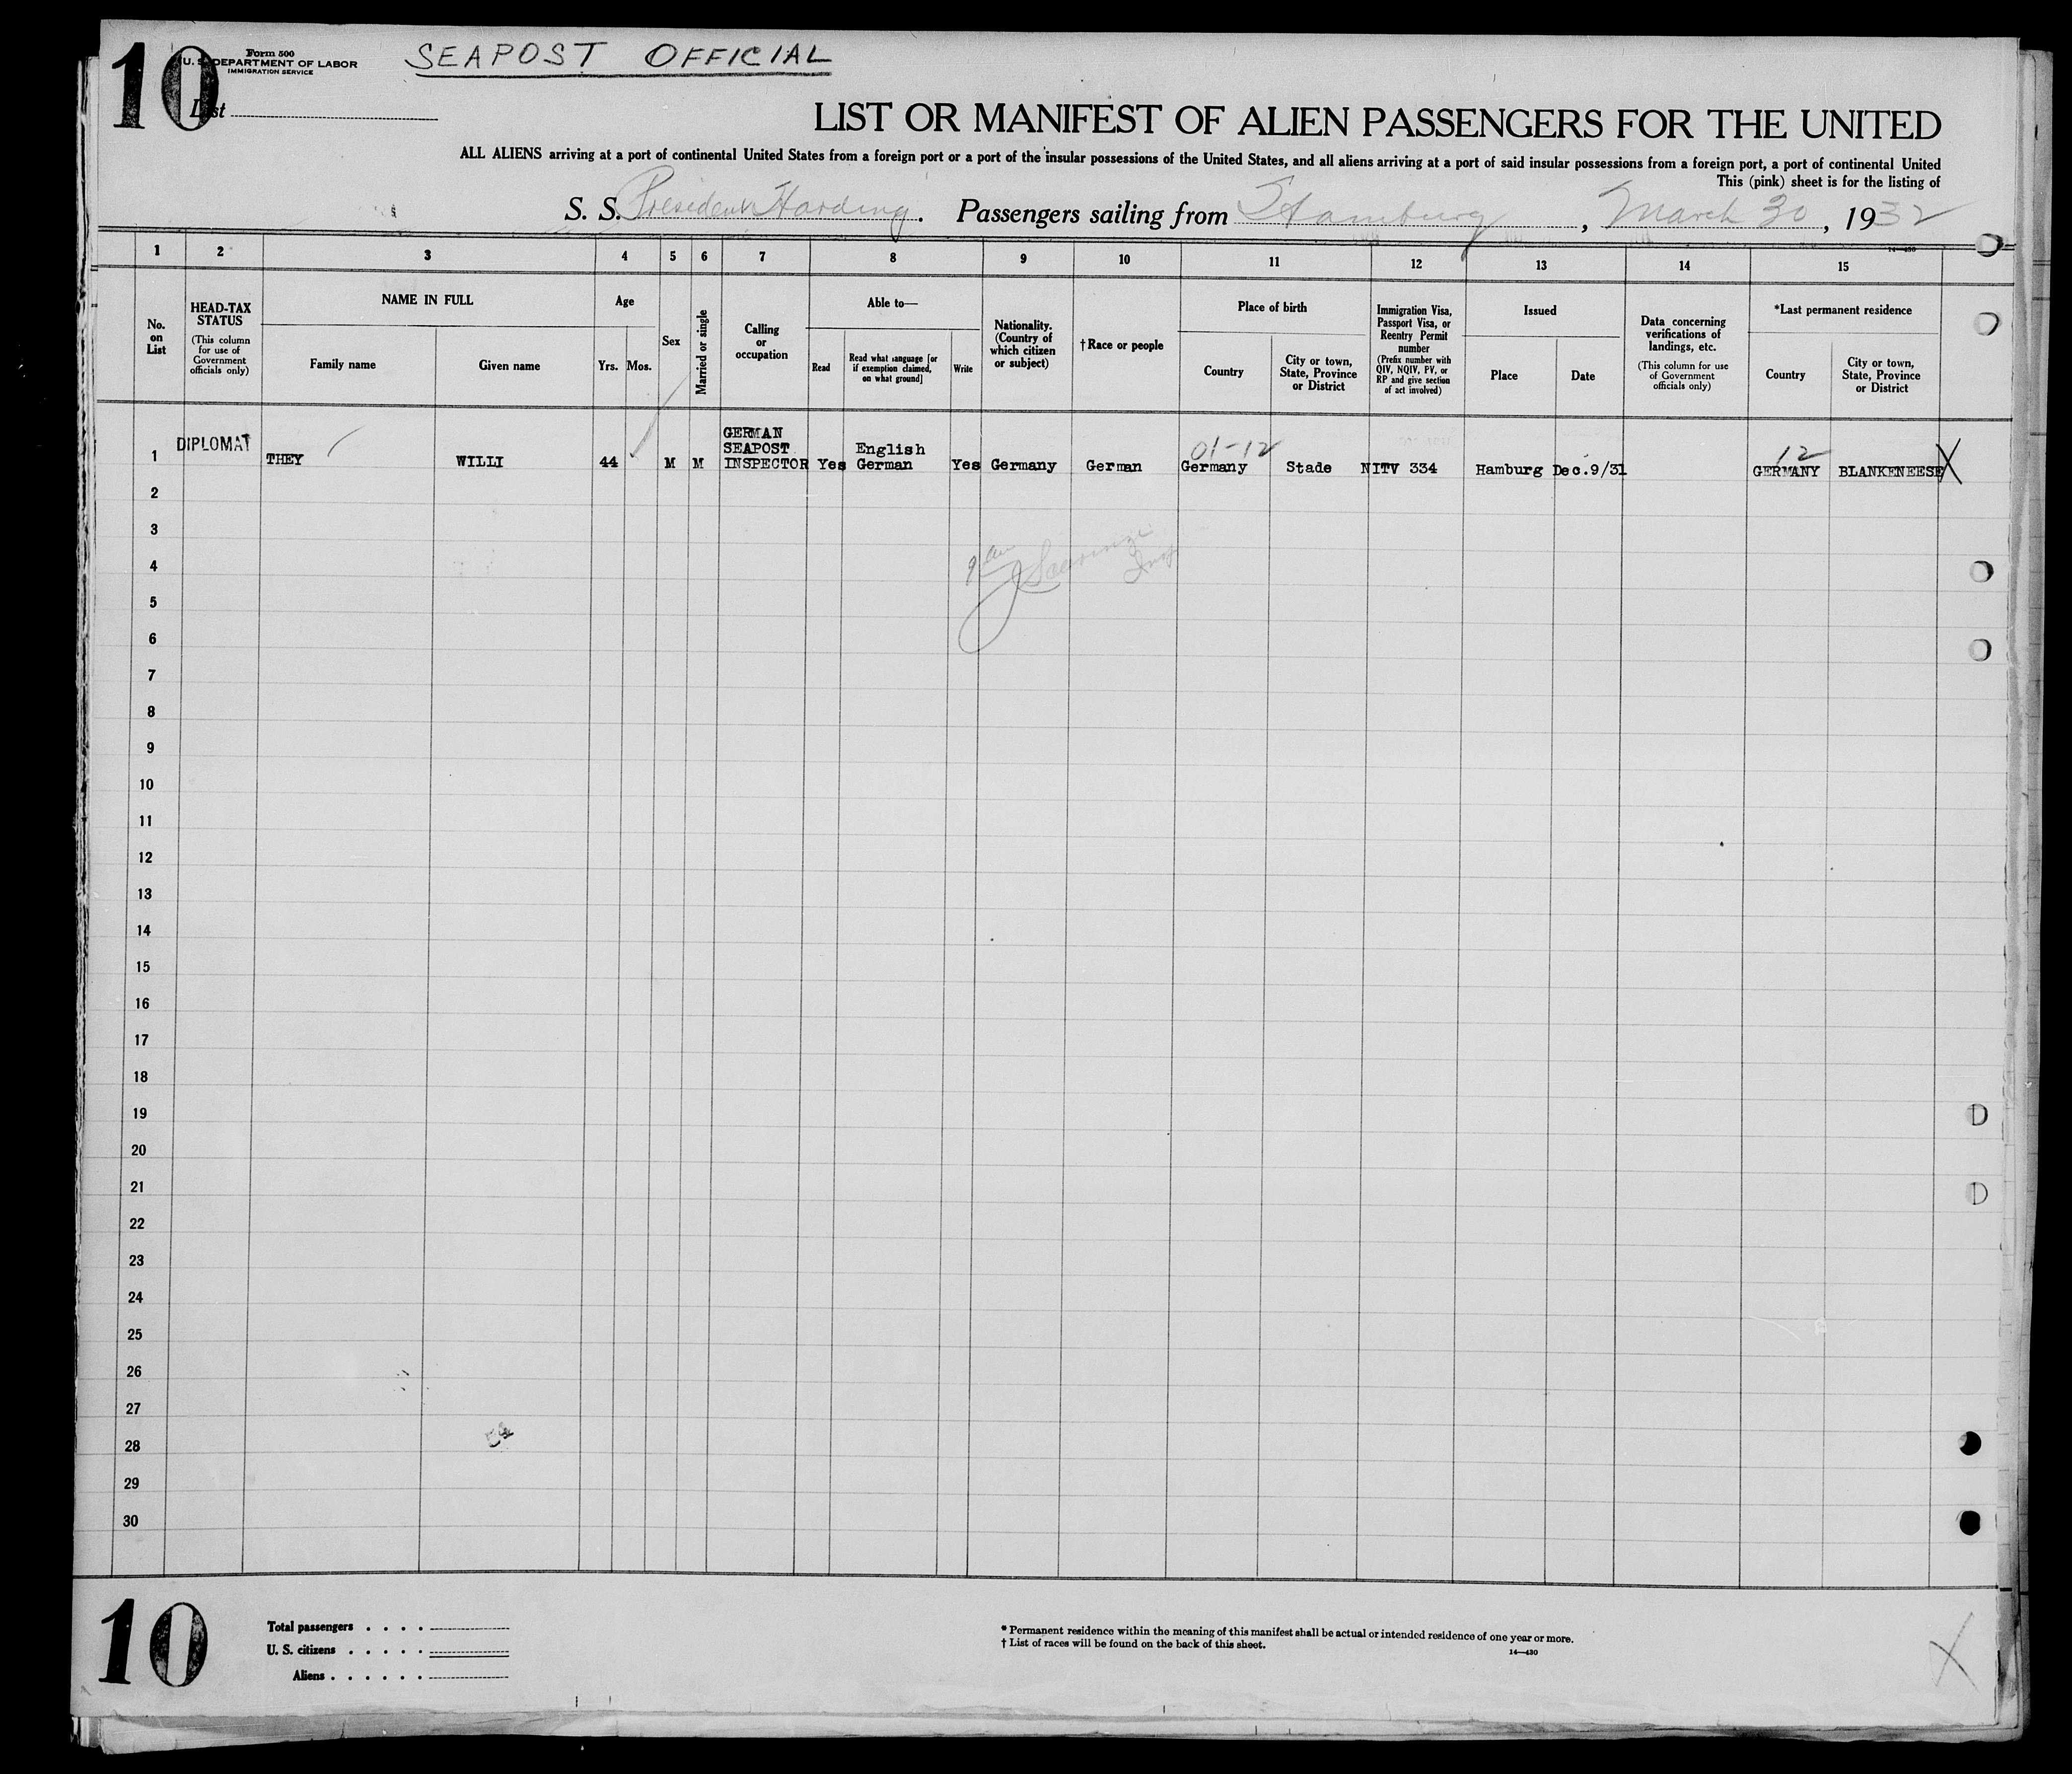 10
Form 500
U. S. DEPARTMENT OF LABOR
IMMIGRATION SERVICE
SEAPOST OFFICIAL
List
LIST OR MANIFEST OF ALIEN PASSENGERS FOR THE UNITED
ALL ALIENS arriving at a port of continental United States from a foreign port or a port of the insular possessions of the United States, and all aliens arriving at a port of said insular possessions from a foreign port, a port of continental United
This (pink) sheet is for the listing of
S. S. President Harding. Passengers sailing from Hamburg, March 30, 1932
14—430
1 2 3 4 5 6 7 8 9 10 11 12 13 14 15
No. on List
HEAD-TAX STATUS
(This column for use of Government officials only)
NAME IN FULL
Family name
Given name
Age
Yrs.
Mos.
Sex
Married or single
Calling or occupation
Able to—
Read
Read what language [or if exemption claimed, on what ground]
Write
Nationality. (Country of which citizen or subject)
†Race or people
Place of birth
Country
City or town, State, Province or District
Immigration Visa, Passport Visa, or Reentry Permit number
(Prefix number with QIV, NQIV, PV, or RP and give section of act involved)
Issued
Place
Date
Data concerning verifications of landings, etc.
(This column for use of Government officials only)
*Last permanent residence
Country
City or town, State, Province or District
01-12
12
1 DIPLOMAT THEY WILLI 44 M M GERMAN SEAPOST INSPECTOR Yes English German Yes Germany German Germany Stade NITV 334 Hamburg Dec.9/31 GERMANY BLANKENEESE X
2
3
4
5
6
7
8
9
10
11
12
13
14
15
16
17
18
19
20
21
22
23
24
25
26
27
28
29
30
10
Total passengers . . . .
U. S. citizens . . . . .
Aliens . . . . . .
* Permanent residence within the meaning of this manifest shall be actual or intended residence of one year or more.
† List of races will be found on the back of this sheet.
14—430
X